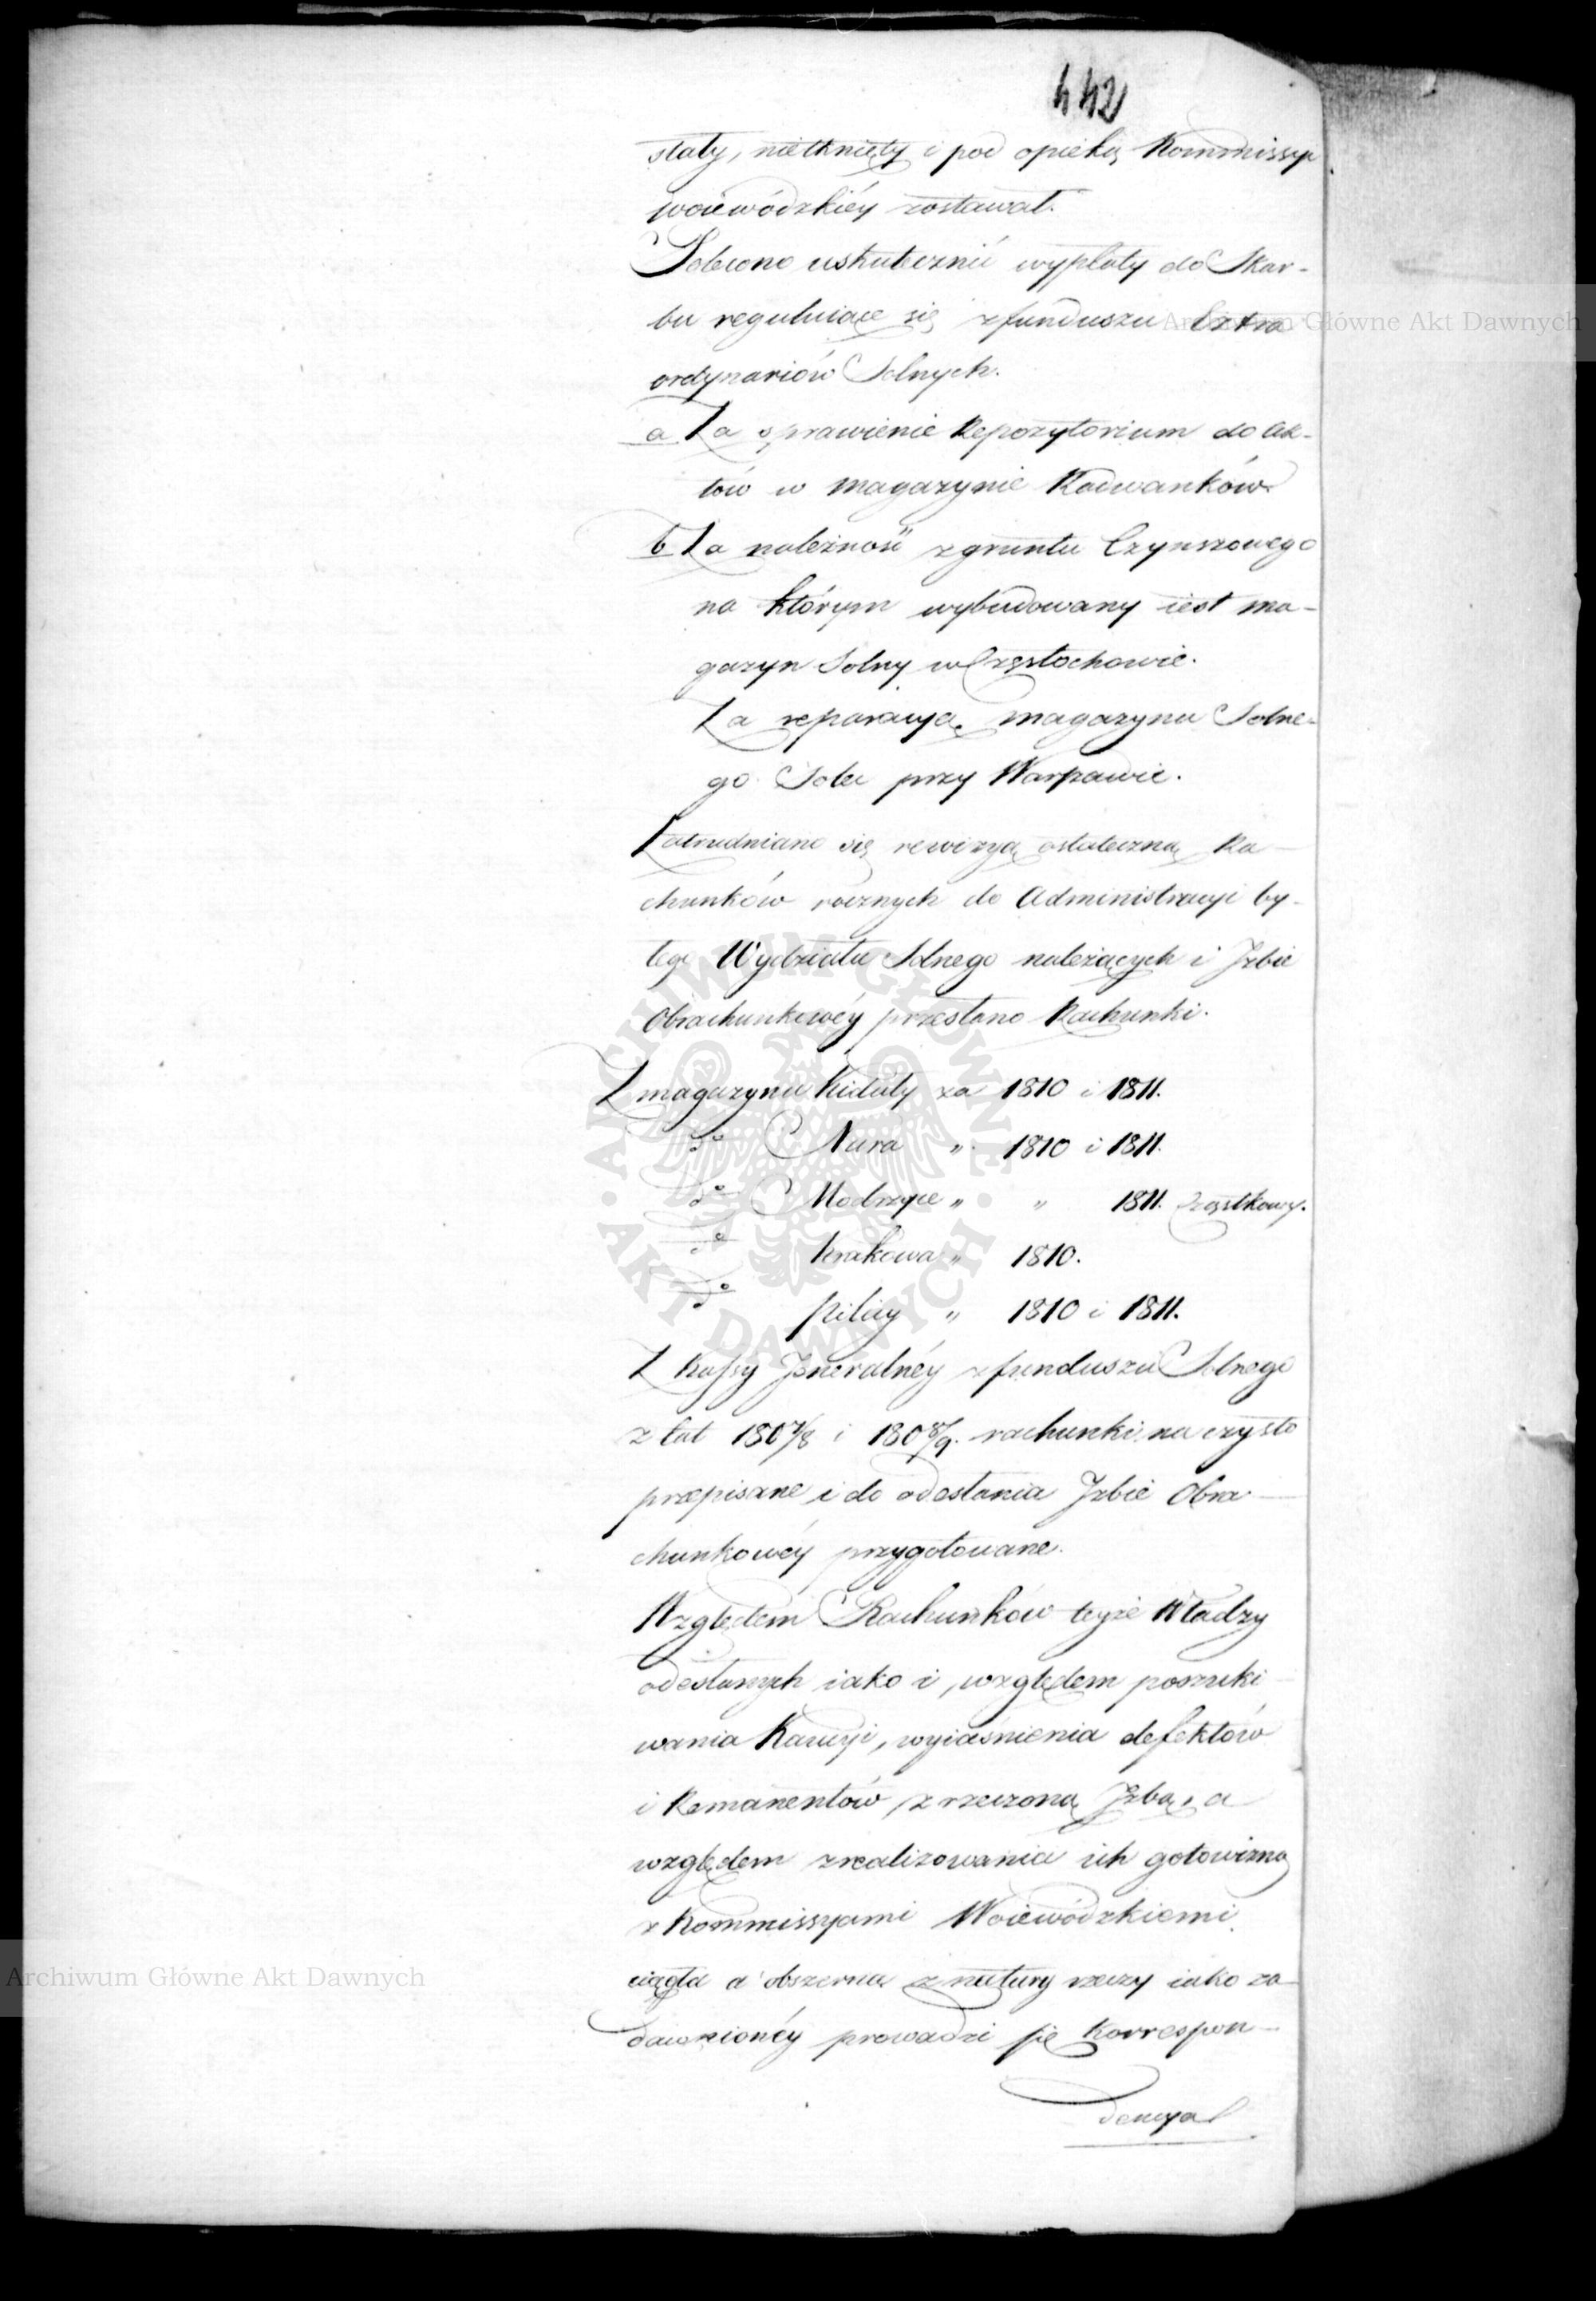 442
stały, nietknięty i pod opieką Kommissyi
woiewódzkiéy zostawał.
Polecono uskutecznić wypłaty do Skar-
bu reguluiące się z funduszu Extra
ordynariów Solnych.
a Za sprawienie Repozytorium do Ak-
tów w magazynie Kadwanków
b Za należność z gruntu Czynszowego
na którym wybudowany iest ma-
gazyn Solny w Częstochowie.
Za reparacyę magazynu Solne-
go Solec przy Warszawie.
Zatrudniano się rewizyą ostateczną Ra-
chunków rocznych do Administracyi by-
łego Wydziału Solnego należących i Izbie
Obrachunkowéy przesłano Rachunki.
Z magazynu Kiduły za 1810 i 1811.
do Nura „ 1810 i 1811.
do Modrzyce „ „ 1811. Cząstkowy.
do Krakowa „ 1810.
do Pilicy „ 1810 i 1811.
Z Kassy Jeneralnéy z funduszu Solnego
z lat 1807/8 i 1808/9. rachunki na czysto
przepisane i do odesłania Izbie Obra-
chunkowéy przygotowane.
Względem Rachunków teyże Władzy
odesłanych iako i, względem poszuki-
wania Kaucyi, wyiaśnienia defektów
i Remanentów, z rzeczoną Izbą, a
względem zrealizowania ich gotowizną
z Kommissyami Woiewódzkiemi
ciągła a obszerna z natury rzeczy iako za-
dawnionéy prowadzi się Korrespon-
dencya
Archiwum Główne Akt Dawnych
Archiwum Główne Akt Dawnych
ARCHIWUM GŁÓWNE • AKT DAWNYCH •